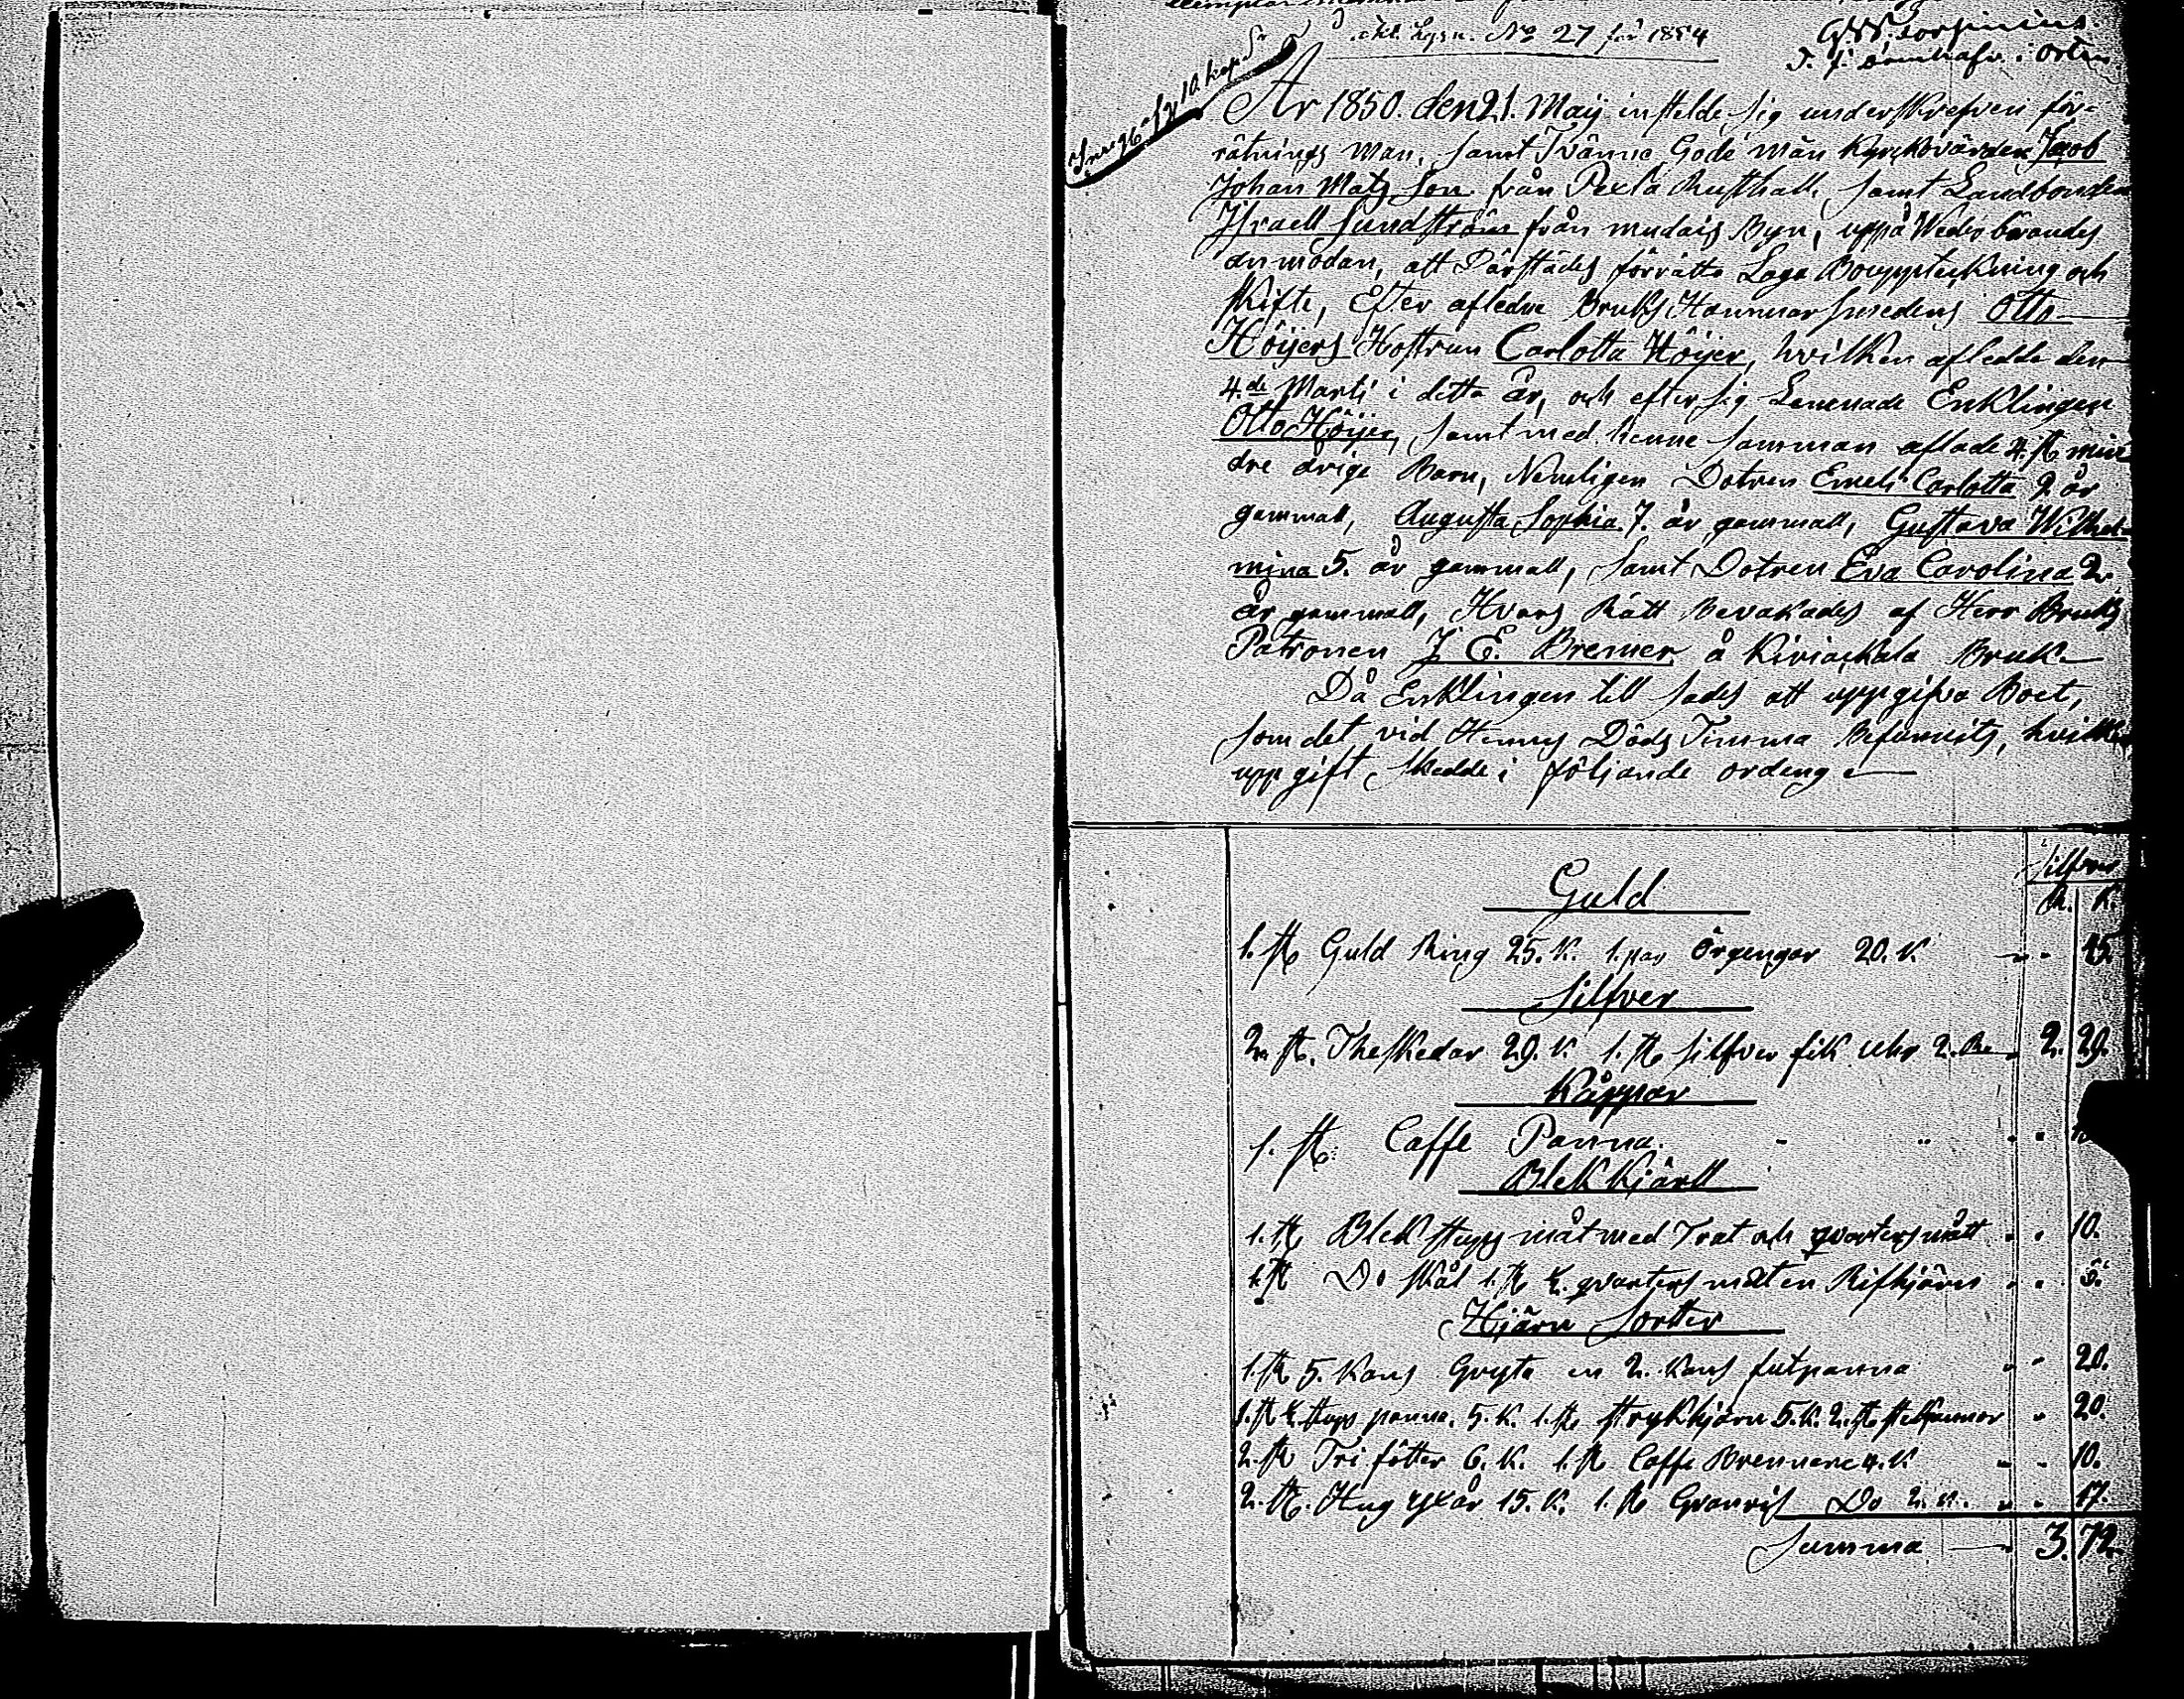 No 27 för 1854
År 1850. den 21. Maij instelde sig underskrefven för-
rätnings man, samt Tvänne Gode män Kyrckovärden Jacob
Johan Mats Son från Pexla Rusthåll, samt Landbonden
Israell Sundström från mudais Byn, uppå Wederbörandes
anmodan, att Därstädes förrätta Laga Bouppteckning och
skifte, Efter afledne Bruks Hammarsmedens Otto
Höijers Hostrun Carlotta Höijer, hvilken afledde den
4.de Marti i detta år, och efter sig Lemnade Enklingen
Otto Höijer, samt med henne samman aflade 4. st min
dre årige Barn, Nemligen Dotren Emeli Carlotta 9 år
gammall, Augusta Sophia 7. år gammall, Gustava Wilhel-
mina 5. år gammall, samt Dotren Eva Carolina 2.
år gammall, Hvars Rätt Bevakades af Herr Bruks
Patronen J E. Bremer å Kiriackala Bruk.
Då Enklingen till sades att uppgifva Boet,
som det vid Hennes Döds Timma Befunnits, hvilken
uppgift skedde i följande ordning
Silfver
Guld
R. K.
1. st Guld Ring 25. K. 1. par Örgengar 20. K. 45.
Silfver
2. st. Theskedar 29. K. 1. st silfver fik Uhr 2. R. 2. 29.
Kåppar
1. st. Caffe Panna.
Blekkjärll
1. st Blek stops måt med Trat och qvartersmått 10.
1. st Do skål 1. st ½ qvarters måt en Rifhjärn 5.
Hjärn Sorter
1. st 5. Kans Gryta en 2. Kans futpanna 20.
1. st ½ stops panna. 5. K. 1. st strykhjärn 5. K. 2. st stekpannor 20.
2. st Tri fötter 6. K. 1. st Caffe Brennare 4. K 10.
2. st. Hug yxår 15. K. 1. st Granris Do 2. K. 17.
Summa 3. 72